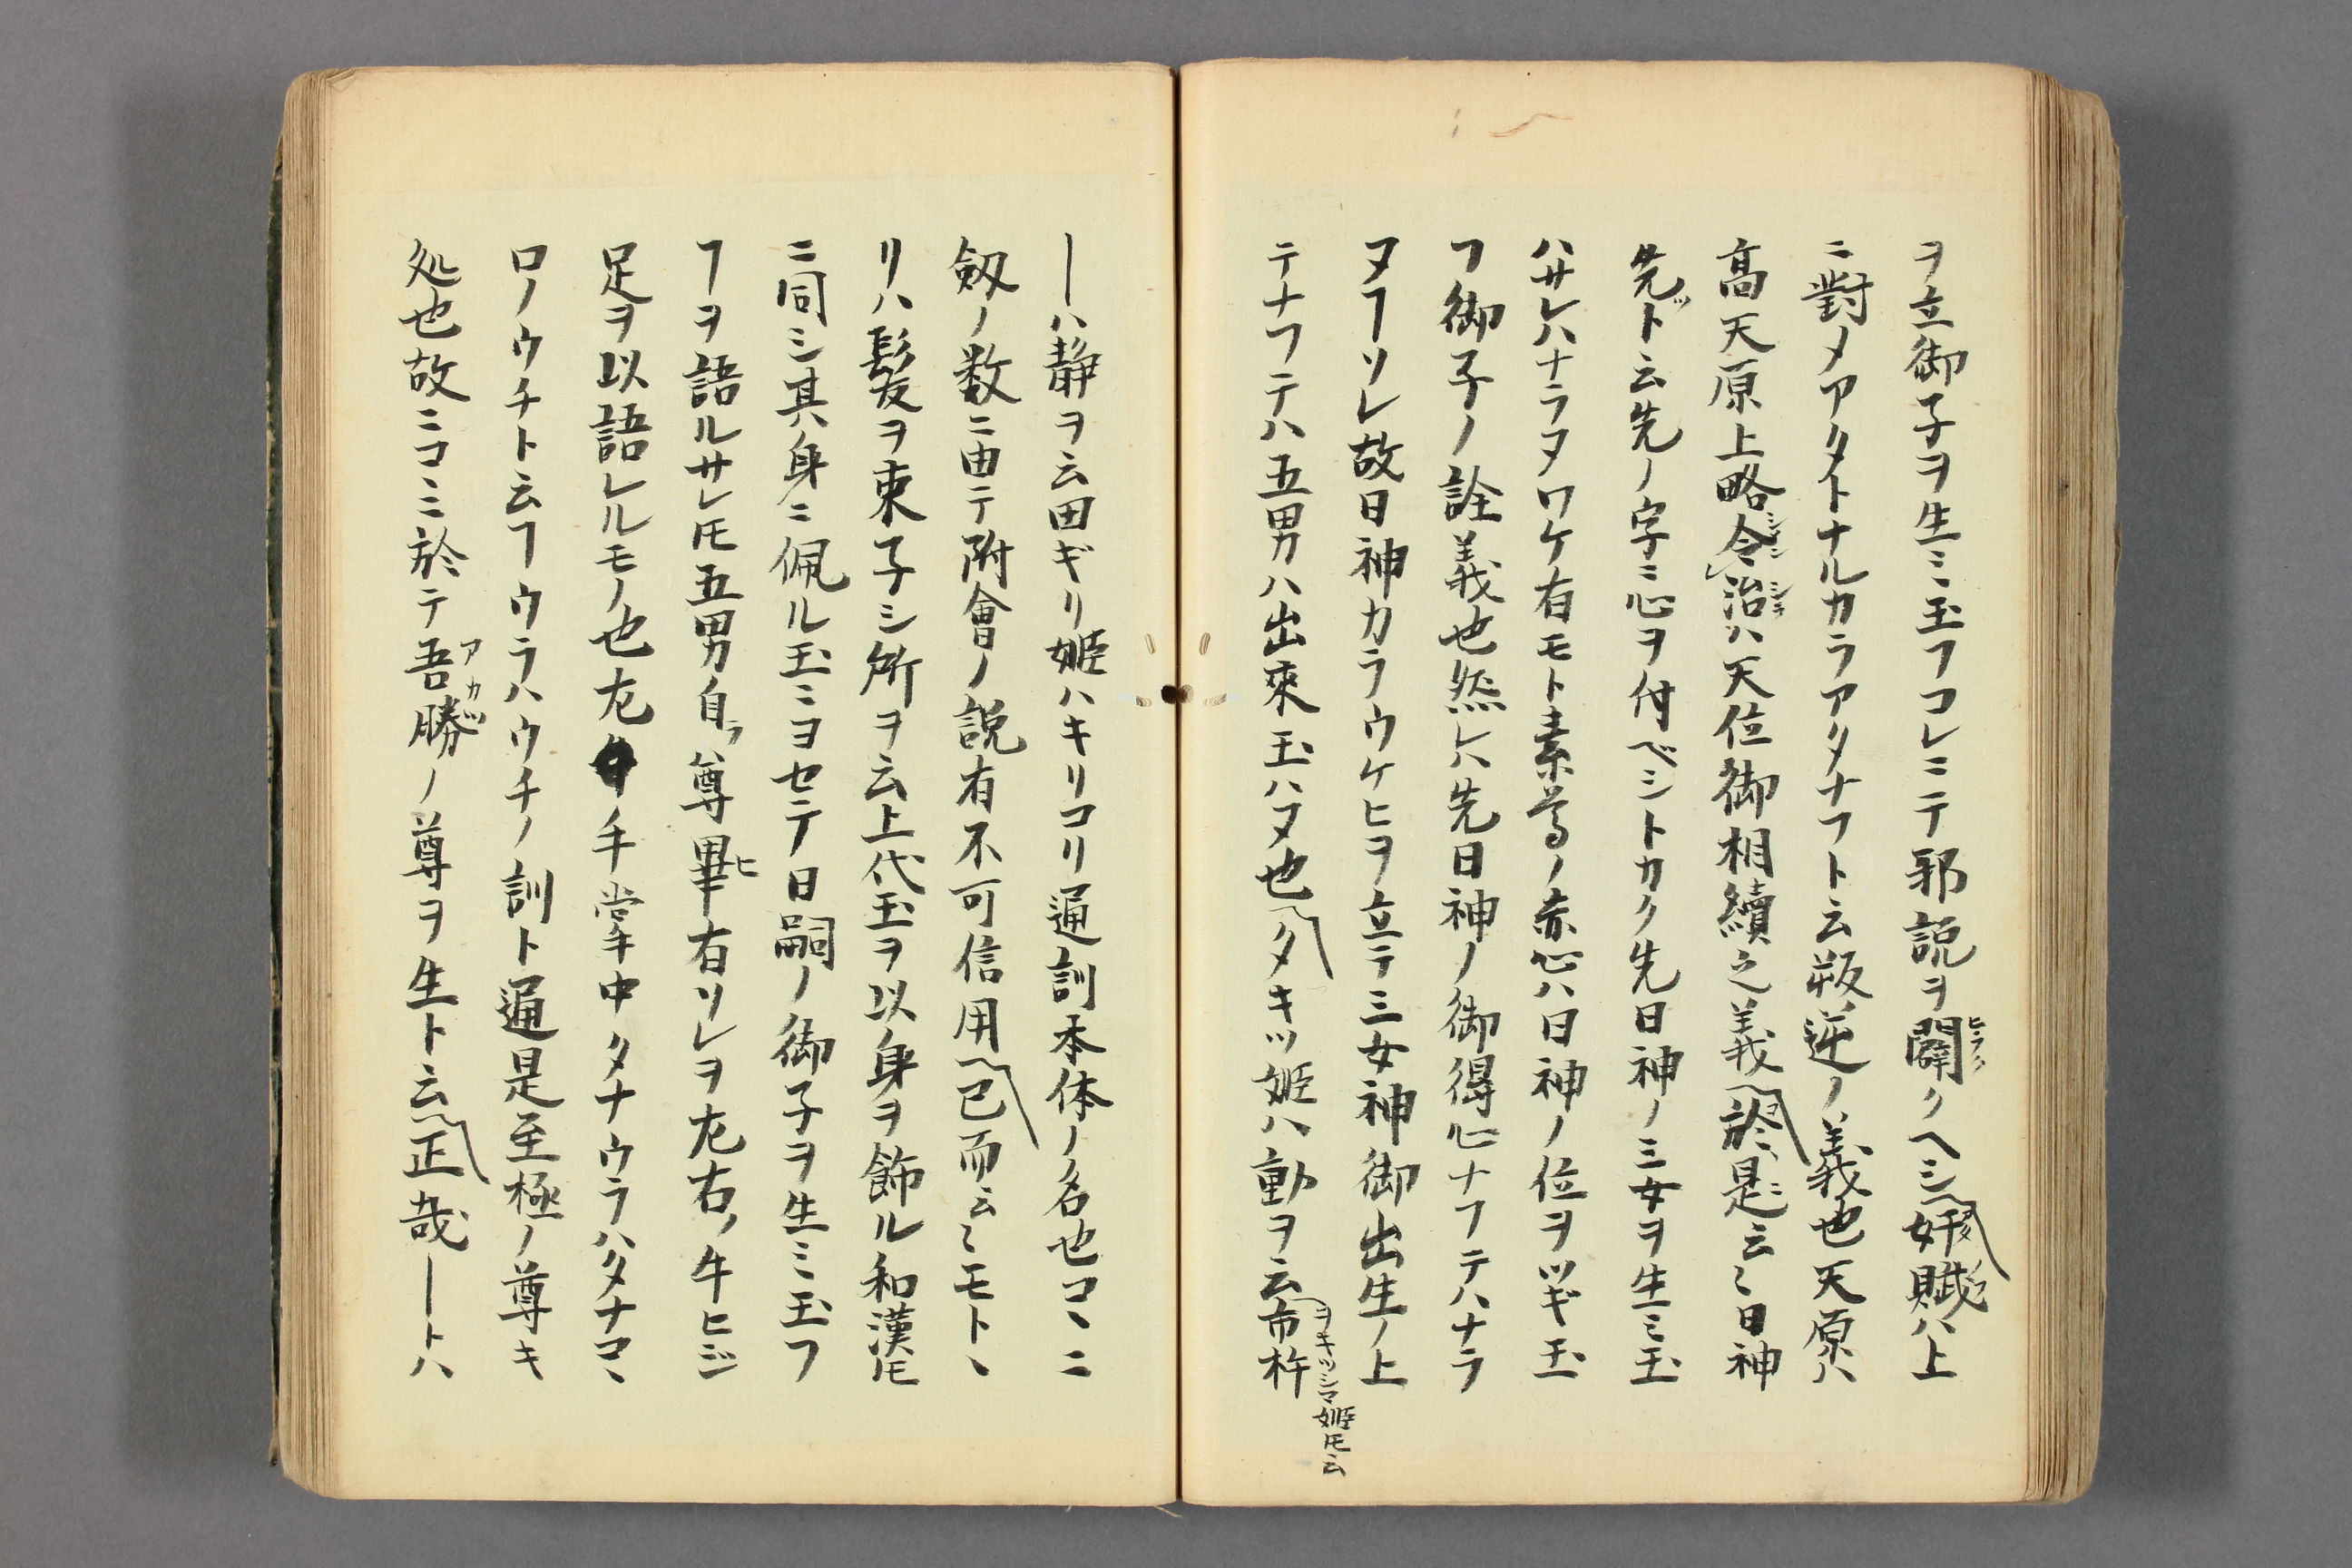 ヲ立御子ヲ生ミ玉フコレニテ邪説ヲ闢クヘシ奸賊ハ上
ニ對メアタトナルカラアタナフト云叛逆ノ義也天原ハ
高天原上略令治ハ天位御相續之義於是云〻日神
先ト云先ノ字ニ心ヲ付ベシトカク先日神ノ三女ヲ生ミ玉
ハサレハナラヌワケ有モト素尊ノ赤心ハ日神ノ位ヲツギ玉
フ御子ノ詮義也然レハ先日神ノ御得心ナフテハナラ
ヌヿソレ故日神カラウケヒヲ立テ三女神御出生ノ上
テナフテハ五男ハ出來玉ハヌ也タキツ姫ハ動ヲ云市杵
ヲキツシマ姫𪜈云
―ハ静ヲ云田ギリ姫ハキリコリ通訓本体ノ名也コヽニ
劔ノ数ニ由テ附會ノ説有不可信用已而云〻モトヽ
リハ髪ヲ束子シ所ヲ云上代玉ヲ以身ヲ飾ル和漢𪜈
ニ同シ其身ニ佩ル玉ニヨセテ日嗣ノ御子ヲ生ミ玉フ
ヿヲ語ルサレ𪜈五男自ラ尊畢有ソレヲ左右ノ牛ヒジ
足ヲ以語レルモノ也左手掌中タナウラハタナコヽ
ロノウチト云フヿウラハウチノ訓ト通是至極ノ尊キ
処也故ニコヽニ於テ吾勝ノ尊ヲ生ト云正哉―トハ